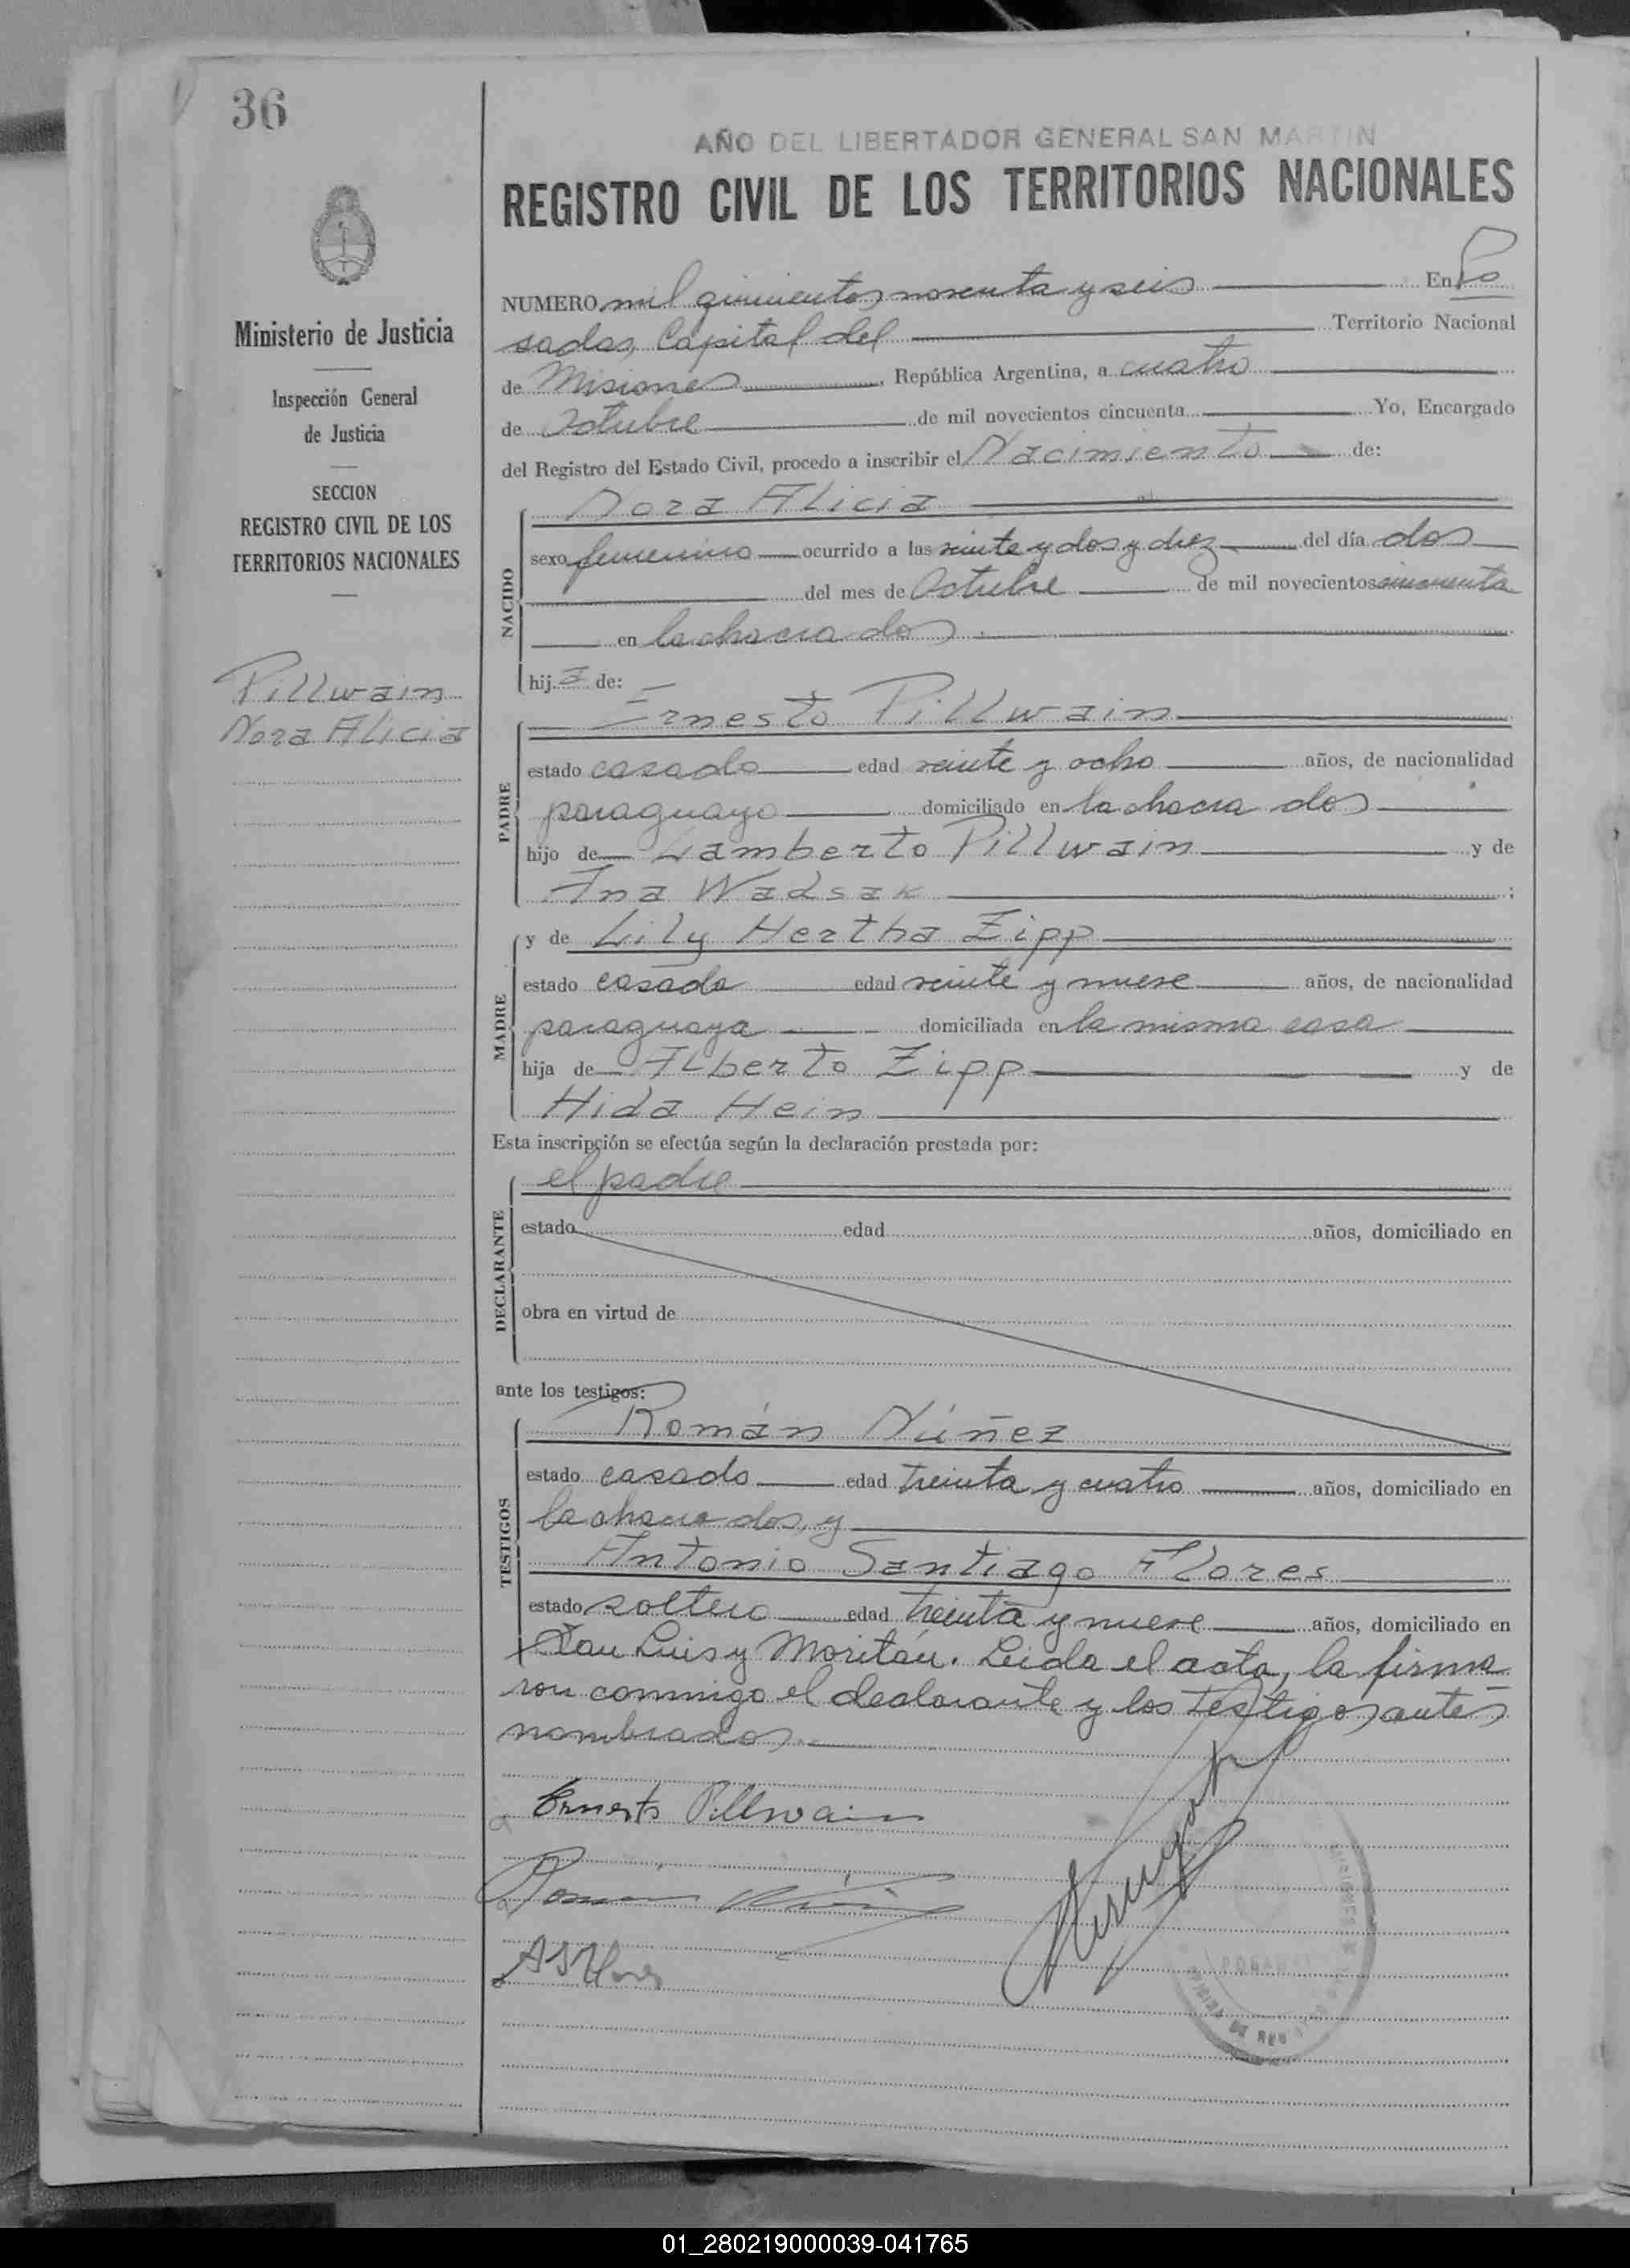 36
Ministerio de Justicia
Inspección General
de Justicia
SECCION
REGISTRO CIVIL DE LOS
TERRITORIOS NACIONALES
Pillwain
Nora Alicia
AÑO DEL LIBERTADOR GENERAL SAN MARTIN
REGISTRO CIVIL DE LOS TERRITORIOS NACIONALES
NUMERO mil quinientos noventa y seis En Po
sadas, Capital del Territorio Nacional
de Misiones, República Argentina, a cuatro
de Octubre de mil novecientos cincuenta Yo, Encargado
del Registro del Estado Civil, procedo a inscribir el Nacimiento de:
NACIDO
Nora Alicia
sexo femenino ocurrido a las veinte y dos y diez del día dos
del mes de Octubre de mil novecientos cincuenta
en la chacra dos
hija de:
PADRE
Ernesto Pillwain
estado casado edad veinte y ocho años, de nacionalidad
paraguayo domiciliado en la chacra dos
hijo de Lamberto Pillwain y de
Ana Wadsak ;
MADRE
y de Lily Hertha Zipp
estado casada edad veinte y nueve años, de nacionalidad
paraguaya domiciliada en la misma casa
hija de Alberto Zipp y de
Hida Hein
Esta inscripción se efectúa según la declaración prestada por:
DECLARANTE
el padre
estado edad años, domiciliado en
obra en virtud de
ante los testigos:
TESTIGOS
Román Núñez
estado casado edad treinta y cuatro años, domiciliado en
la chacra dos, y
Antonio Santiago Flores
estado soltero edad treinta y nueve años, domiciliado en
San Luis y Moritán. Leida el acta, la firma
ron conmigo el declarante y los testigos antes
nombrados.
Ernesto Pillwain
ASFlores
POSADAS
01_280219000039-041765